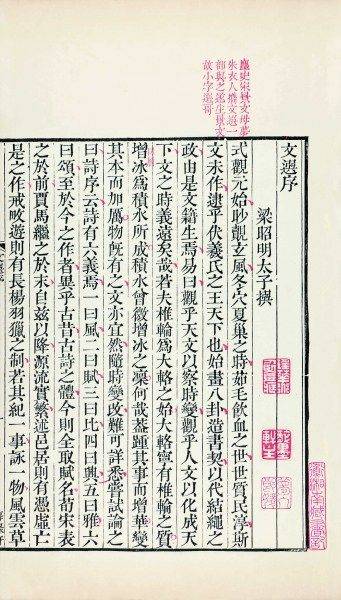 麈史宋景文母夢
朱衣人攜文選一
部與之遂生景文
故小字選哥
文選序
梁昭明太子撰
式觀元始眇覿玄風冬穴夏巢之時茹毛飲血之世世質民淳斯
文未作逮乎伏羲氏之王天下也始畫八卦造書契以代結繩之
政由是文籍生焉易曰觀乎天文以察時變觀乎人文以化成天
下文之時義遠矣哉若夫椎輪爲大輅之始大輅寧有椎輪之質
增冰爲積水所成積水曾微增冰之凜何哉蓋踵其事而增華變
其本而加厲物既有之文亦宜然隨時變改難可詳悉嘗試論之
曰詩序云詩有六義焉一曰風二曰賦三曰比四曰興五曰雅六
曰頌至於今之作者異乎古昔古詩之體今則全取賦名荀宋表
之於前賈馬繼之於末自茲以降源流實繁述邑居則有憑虛亡
是之作戒畋遊則有長楊羽獵之制若其紀一事詠一物風雲草